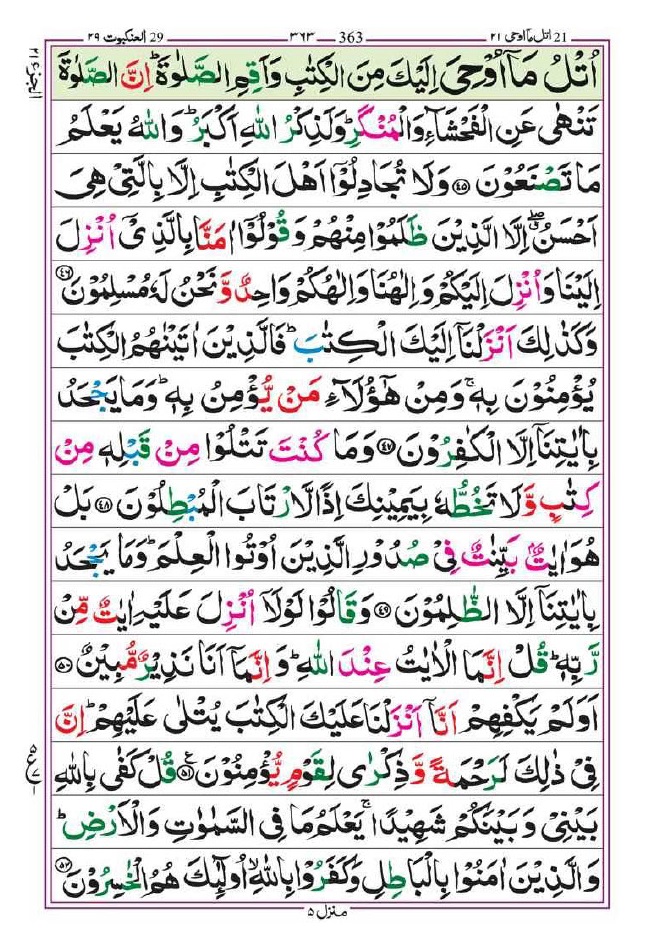 21 اتل ما اوحی ۲۱
363 ۳۶۳
29 العنکبوت ۲۹
اُتْلُ مَاۤ اُوْحِیَ اِلَیْكَ مِنَ الْكِتٰبِ وَاَقِمِ الصَّلٰوةَ ؕ اِنَّ الصَّلٰوةَ
تَنْهٰی عَنِ الْفَحْشَآءِ وَالْمُنْكَرِ ؕ وَلَذِكْرُ اللّٰهِ اَكْبَرُ ؕ وَاللّٰهُ یَعْلَمُ
مَا تَصْنَعُوْنَ ﴿۴۵﴾ وَلَا تُجَادِلُوْۤا اَهْلَ الْكِتٰبِ اِلَّا بِالَّتِیْ هِیَ
اَحْسَنُ ۖ اِلَّا الَّذِیْنَ ظَلَمُوْا مِنْهُمْ وَقُوْلُوْۤا اٰمَنَّا بِالَّذِیْۤ اُنْزِلَ
اِلَیْنَا وَاُنْزِلَ اِلَیْكُمْ وَاِلٰهُنَا وَاِلٰهُكُمْ وَاحِدٌ وَّنَحْنُ لَهٗ مُسْلِمُوْنَ ﴿۴۶﴾
وَكَذٰلِكَ اَنْزَلْنَاۤ اِلَیْكَ الْكِتٰبَ ؕ فَالَّذِیْنَ اٰتَیْنٰهُمُ الْكِتٰبَ
یُؤْمِنُوْنَ بِهٖ ۚ وَمِنْ هٰۤؤُلَآءِ مَنْ یُّؤْمِنُ بِهٖ ؕ وَمَا یَجْحَدُ
بِاٰیٰتِنَاۤ اِلَّا الْكٰفِرُوْنَ ﴿۴۷﴾ وَمَا كُنْتَ تَتْلُوْا مِنْ قَبْلِهٖ مِنْ
كِتٰبٍ وَّلَا تَخُطُّهٗ بِیَمِیْنِكَ اِذًا لَّارْتَابَ الْمُبْطِلُوْنَ ﴿۴۸﴾ بَلْ
هُوَ اٰیٰتٌۢ بَیِّنٰتٌ فِیْ صُدُوْرِ الَّذِیْنَ اُوْتُوا الْعِلْمَ ؕ وَمَا یَجْحَدُ
بِاٰیٰتِنَاۤ اِلَّا الظّٰلِمُوْنَ ﴿۴۹﴾ وَقَالُوْا لَوْلَاۤ اُنْزِلَ عَلَیْهِ اٰیٰتٌ مِّنْ
رَّبِّهٖ ؕ قُلْ اِنَّمَا الْاٰیٰتُ عِنْدَ اللّٰهِ ؕ وَاِنَّمَاۤ اَنَا نَذِیْرٌ مُّبِیْنٌ ﴿۵۰﴾
اَوَلَمْ یَكْفِهِمْ اَنَّاۤ اَنْزَلْنَا عَلَیْكَ الْكِتٰبَ یُتْلٰی عَلَیْهِمْ ؕ اِنَّ
فِیْ ذٰلِكَ لَرَحْمَةً وَّذِكْرٰی لِقَوْمٍ یُّؤْمِنُوْنَ ﴿۵۱﴾ قُلْ كَفٰی بِاللّٰهِ
بَیْنِیْ وَبَیْنَكُمْ شَهِیْدًا ۚ یَعْلَمُ مَا فِی السَّمٰوٰتِ وَالْاَرْضِ ؕ
وَالَّذِیْنَ اٰمَنُوْا بِالْبَاطِلِ وَكَفَرُوْا بِاللّٰهِ ۙ اُولٰٓئِكَ هُمُ الْخٰسِرُوْنَ ﴿۵۲﴾
منزل ۵